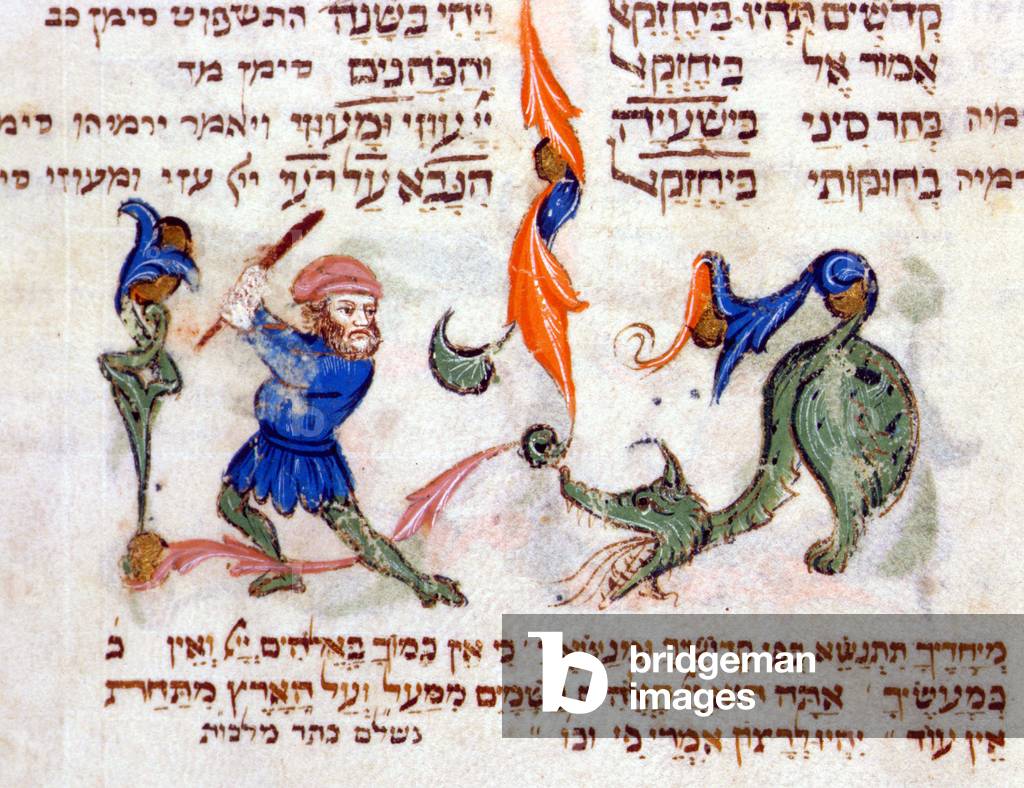 קדשים תהיו ביחזקא ויהי בשנה התשפוט סימן כב
אמור אל ביחזקא והכהנים סימן מד
מיה בחר סיני בישעיה יי עוזי ומעוזי ויאמר ירמיהו סימ
רמיה בחוקותי ביחזקא הנבא על רעי ייי עזי ומעוזי סי
מיחדיך תתנשא כי אין כמוך באלהים ייי ואין כ
כמעשיך אתה שמים ממעל ועל הארץ מתחרת
אין עוד יהיו לרצון אמרי פי וכו
נשלם כתר מלכות
b bridgeman images